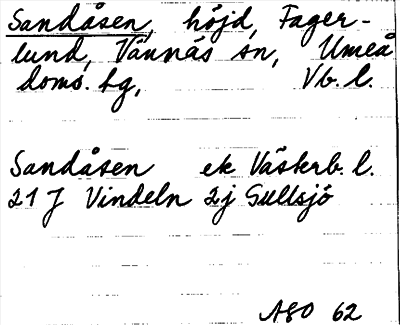 Sandåsen, höjd, Fager-
lund, Vännäs sn, Umeå
doms. tg, Vb. l.
Sandåsen ek Västerb. l.
21 J Vindeln 2j Gullsjö
ASO 62